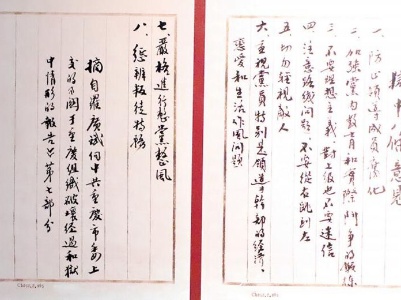 獄中八條意見
一、防止領導成員腐化
二、加強黨內教育和實際鬥爭的鍛煉
三、不要理想主義對上級也不要迷信
四、注意路綫問題不要從右跳到左
五、切勿輕視敵人
六、重視黨員特別是領導幹部的經濟、
戀愛和生活作風問題
七、嚴格進行整黨整風
八、懲辦叛徒特務
摘自羅廣斌向中共重慶市委上
交的《關于重慶組織破壞經過和獄
中情形的報告》第七部分